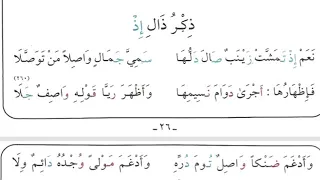 ذِكْرُ ذَالِ إِذْ
نَعَمْ إِذْ تَمَشَّتْ زَيْنَبٌ صَالَ دَلُّهَا سَمِيَّ جَمَالٍ وَاصِلاً مَنْ تَوَصَّلَا
فَإِظْهَارُهَا : أَجْرَىٰ دَوَامَ نَسِيمِهَا وَأَظْهَرَ رَيَّا قَوْلِهِ وَاصِفٌ جَلَا (٢٦٠)
-٢٦-
وَأَدْغَمَ ضَنْكاً وَاصِلٌ تُومَ دُرِّهِ وَأَدْغَمَ مَوْلىً وُجْدُهُ دَائِمٌ وِلَا